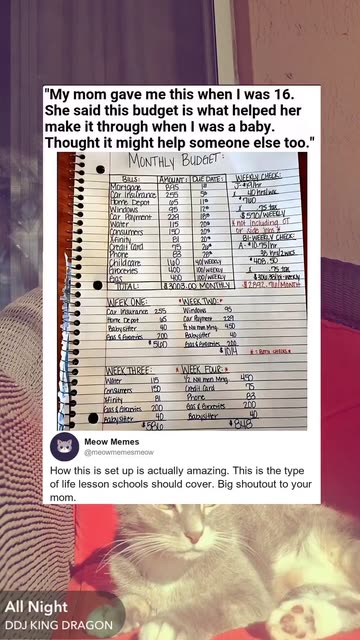 "My mom gave me this when I was 16.
She said this budget is what helped her
make it through when I was a baby.
Thought it might help someone else too."
MONTHLY BUDGET:
BILLS: AMOUNT: DUE DATE:
Mortgage 895 1st
Car Insurance 255 5th
Home Depot 65 11th
Windows 95 12th
Car Payment 229 18th
Water 115 20th
Consumers 150 20th
Xfinity 81 20th
Credit Card 75 26th
Phone 83 28th
Childcare 160 40/WEEKLY
Groceries 400 100/WEEKLY
Gas 400 100/WEEKLY
TOTAL: $3003.00 MONTHLY
WEEKLY CHECK:
40 hrs/wk
$760
x .75 tax
$570/WEEKLY
*not including OT
or side jobs*
BI-WEEKLY CHECK:
A-$10.75/hr
38 hrs/2wks
$408.50
x .75 tax
WEEK ONE:
Car Insurance 255
Home Depot 65
Babysitter 40
Gas & Groceries 200
$560
*WEEK TWO:*
Windows 95
Car Payment 229
1/2 Nxt mon Mtng. 450
Babysitter 40
Gas & Groceries 200
$1014
*2 BOTH CHECKS*
WEEK THREE:
Water 115
Consumers 150
Xfinity 81
Gas & Groceries 200
Babysitter 40
$586
*WEEK FOUR:*
1/2 Nxt mon Mtng. 450
Credit Card 75
Phone 83
Gas & Groceries 200
Babysitter 40
$848
Meow Memes
@meowmemesmeow
How this is set up is actually amazing. This is the type
of life lesson schools should cover. Big shoutout to your
mom.
All Night
DDJ KING DRAGON